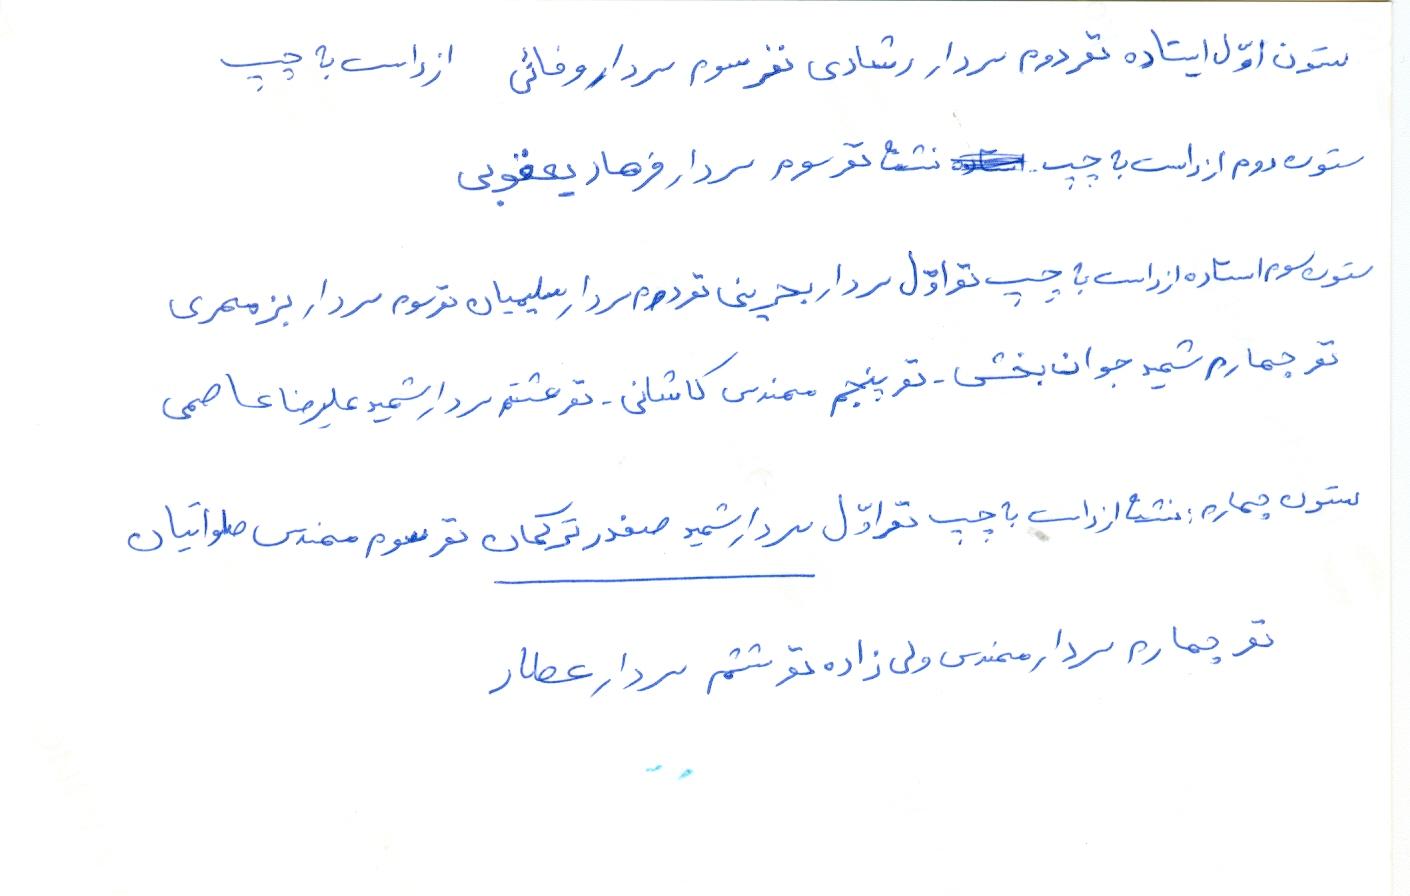 ستون اوّل ایستاده نفر دوم سردار رشادی نفر سوم سردار وفائی از راست به چپ
ستون دوم از راست به چپ نشسته نفر سوم سردار فرهاد یعقوبی
ستون سوم استاده از راست به چپ نفر اوّل سردار بحرینی نفر دوم سردار سلیمیان نفر سوم سردار بزمهری
نفر چهارم شهید جوان بخشی - نفر پنجم مهندس کاشانی - نفر هشتم سردار شهید علیرضا عاصمی
ستون چهارم: نشسته از راست به چپ نفر اوّل سردار شهید صفدر ترکمان نفر سوم مهندس صلواتیان
نفر چهارم سردار مهندس ولی زاده نفر ششم سردار عطار